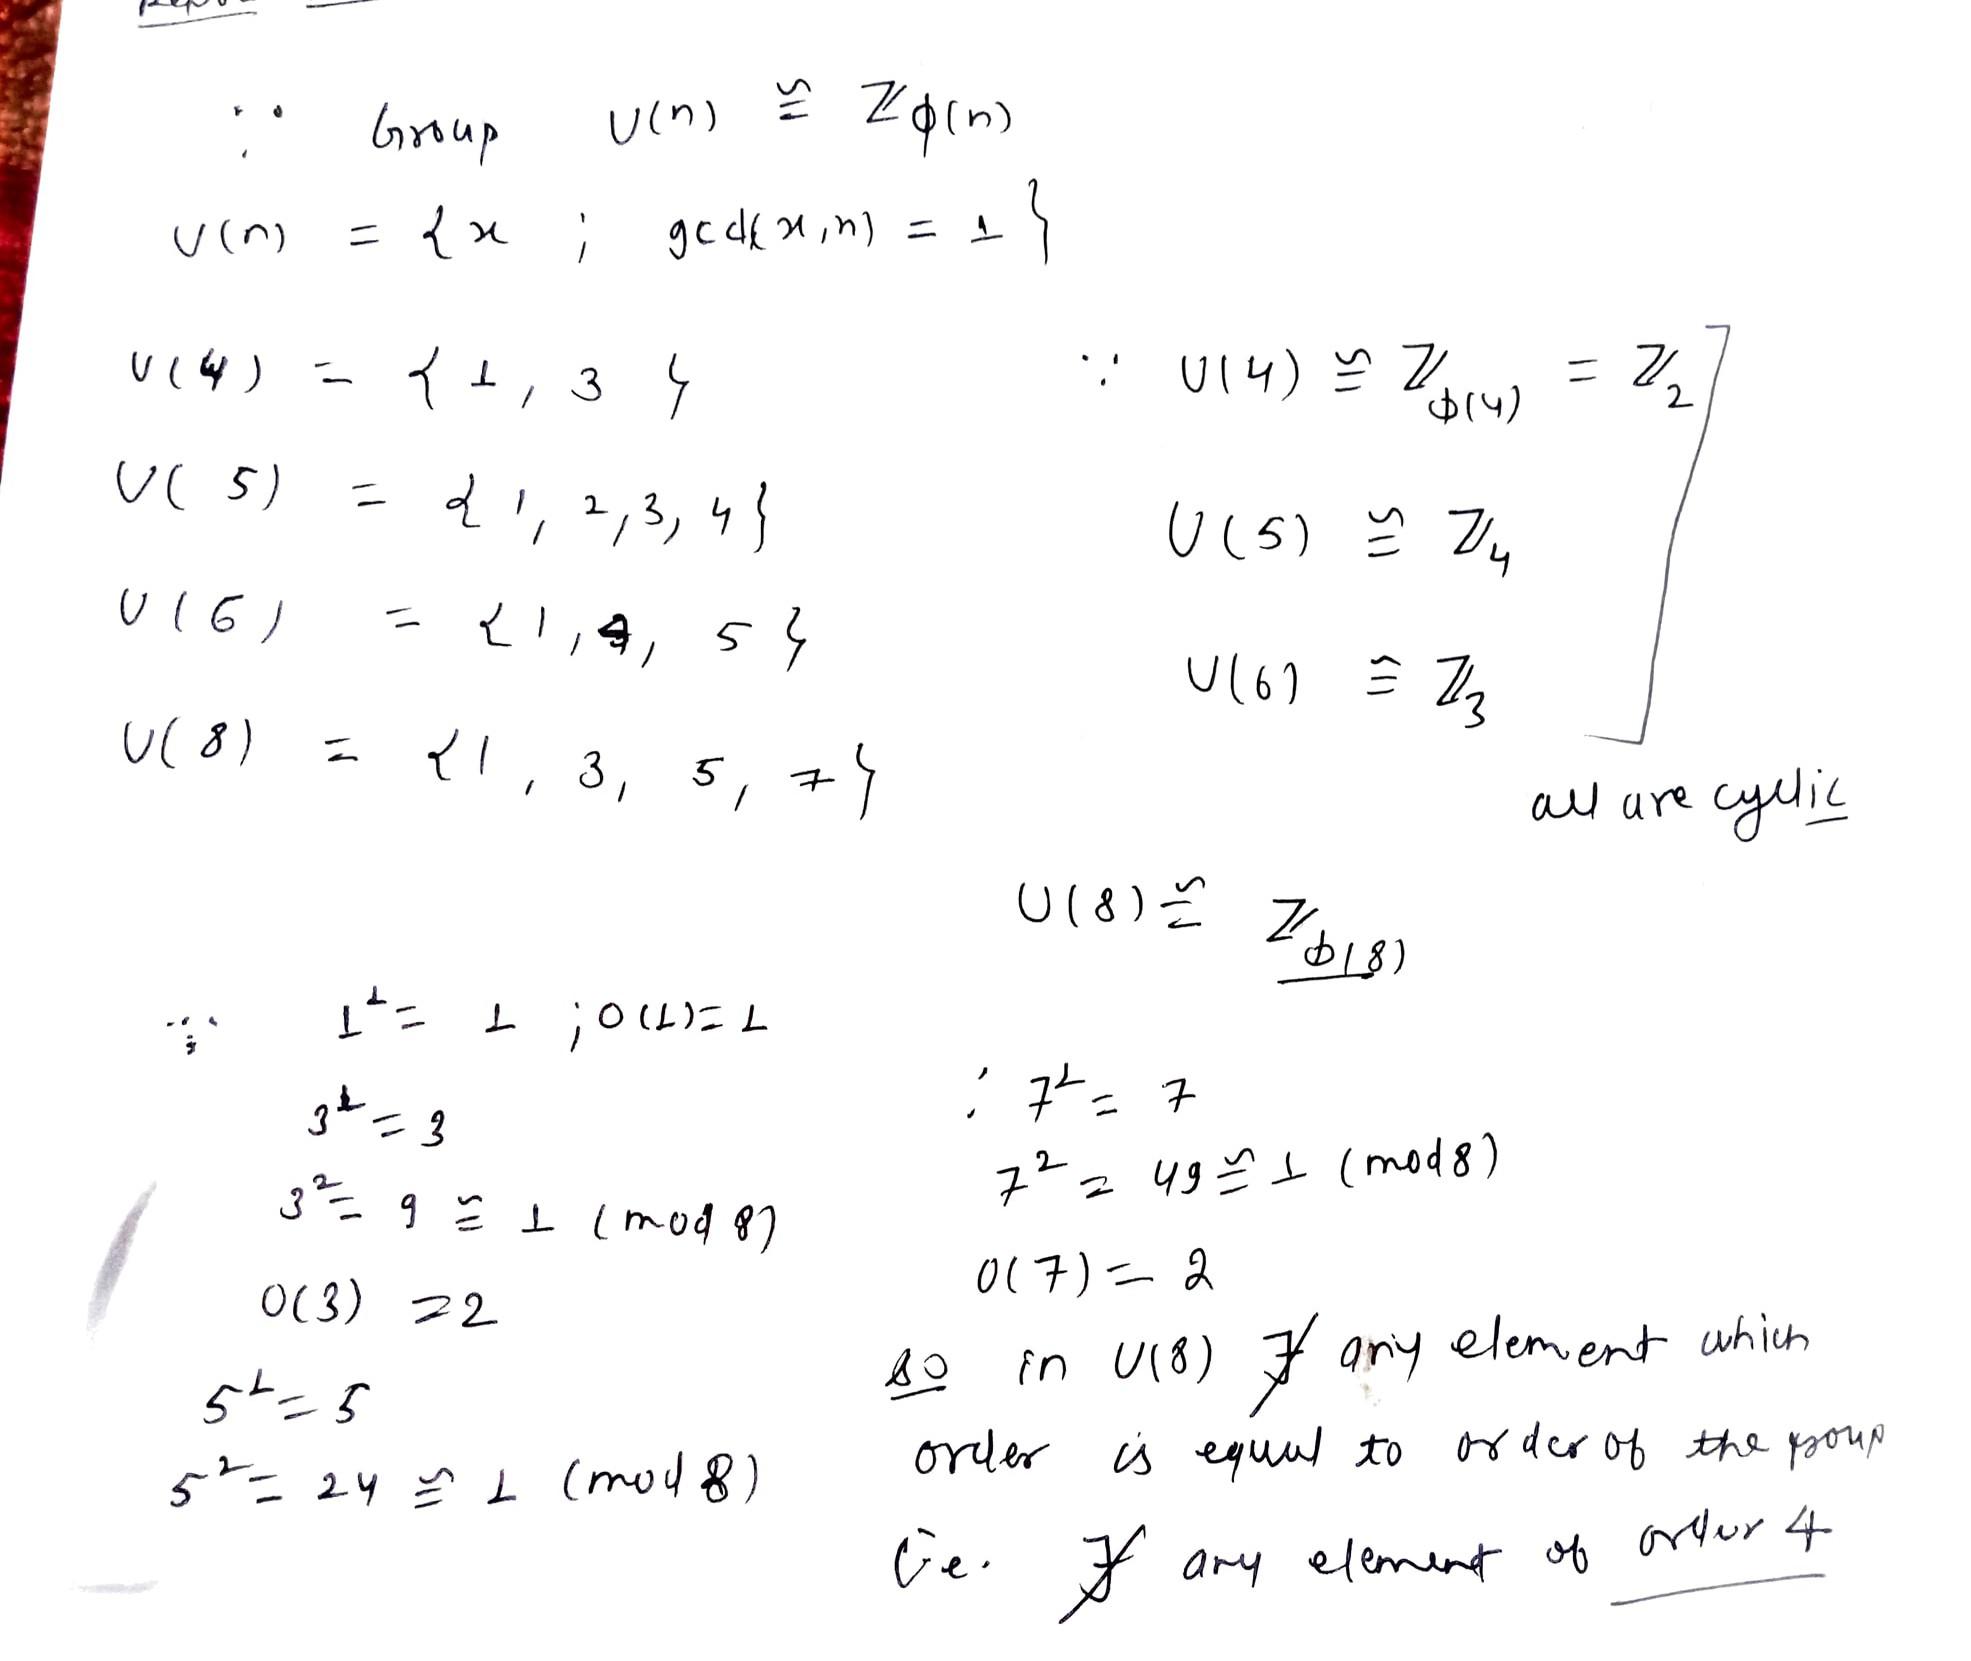 ∵ Group U(n) ≅ ℤϕ(n)
U(n) = {x ; gcd(x,n) = 1}
U(4) = {1, 3}
U(5) = {1, 2, 3, 4}
U(6) = {1, 4, 5}
U(8) = {1, 3, 5, 7}
∵ U(4) ≅ ℤϕ(4) = ℤ2
U(5) ≅ ℤ4
U(6) ≅ ℤ3
all are cyclic
U(8) ≅ ℤϕ(8)
∵ 1^1 = 1 ; O(1) = 1
3^1 = 3
3^2 = 9 ≅ 1 (mod 8)
O(3) = 2
5^1 = 5
5^2 = 24 ≅ 1 (mod 8)
: 7^1 = 7
7^2 = 49 ≅ 1 (mod 8)
O(7) = 2
so in U(8) ∄ any element which
order is equal to order of the group
i.e. ∄ any element of order 4